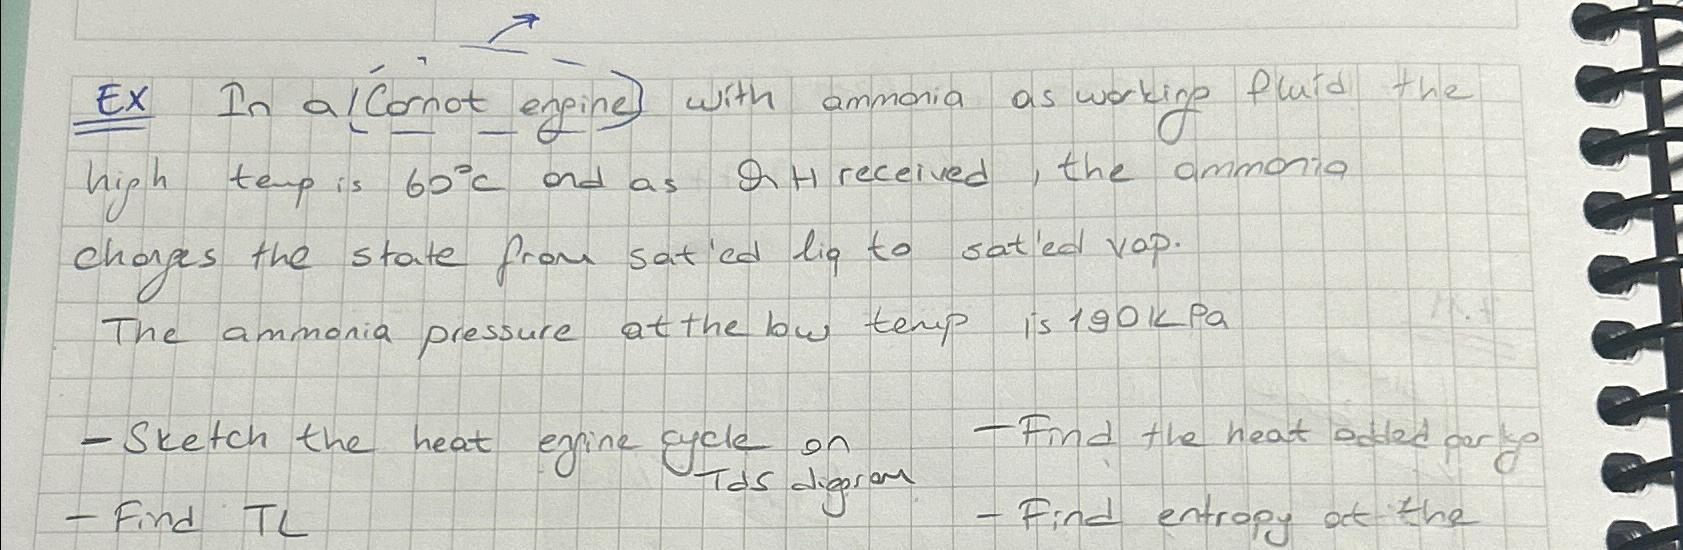 Ex In a (Carnot engine) with ammonia as working fluid the
high temp is 60°C and as QH received, the ammonia
changes the state from sat'ed liq to sat'ed vap.
The ammonia pressure at the low temp is 190 kPa
- Sketch the heat engine cycle on
Tds digram
- Find TL
- Find the heat added per kg
- Find entropy at the